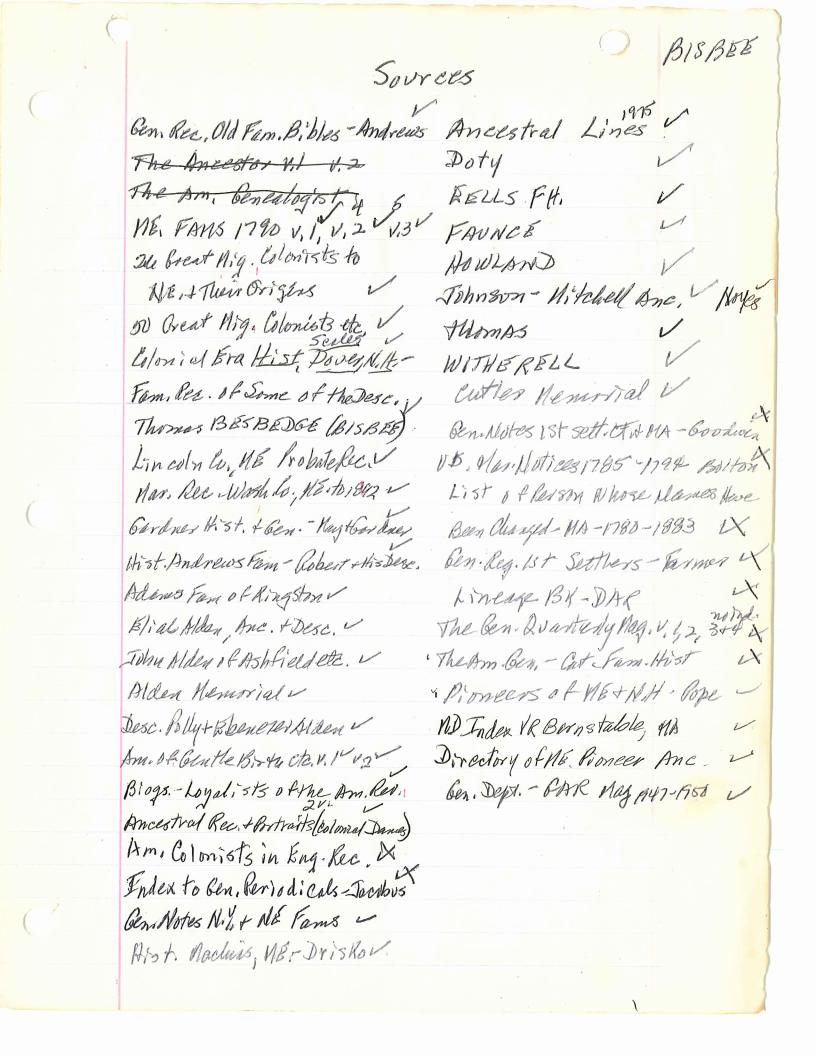 BISBEE
Sources
✓
Gen. Rec. Old Fam. Bibles - Andrews
The Ancestor v.1 v.2
The Am. Genealogist
4 5
ME. FAMS 1790 v.1, ✓ v.2 ✓ v.3 ✓
The Great Mig. Colonists to
NE. & Their Origins ✓
50 Great Mig. Colonists etc. ✓
Scales ✓
Colonial Era Hist, Dover, N.H. -
Fam. Rec. of Some of the Desc. ✓
Thomas BESBEDGE (BISBEE)
Lincoln Co, ME Probate Rec. ✓
Mar. Rec. Wash Co, ME. to 1892 ✓
Gardner Hist. & Gen. - May & Gardner ✓
Hist. Andrews Fam - Robert & His Desc. ✓
Adams Fam of Kingston ✓
Elial Alden, Anc. & Desc. ✓
John Alden of Ashfield etc. ✓
Alden Memorial ✓
Desc. Polly & Ebenezer Alden ✓
Am. of Gentle Birth etc. v.1 ✓ v.2 ✓
Biogs. - Loyalists of the Am. Rev. ✓
2 v. ✓
Ancestral Rec. & Portraits (Colonial Dames)
Am. Colonists in Eng. Rec. X
Index to Gen. Periodicals - Jacobus X
Gen. Notes N.Y. & NE Fams ✓
Hist. Machias, ME. - Drisko ✓
1975
Ancestral Lines ✓
Doty ✓
EELLS F.H. ✓
FAUNCE ✓
HOWLAND ✓
Johnson - Mitchell Anc. ✓ Noyes ✓
Thomas ✓
WITHERELL ✓
Cutler Memorial ✓
Gen. Notes 1st sett. CT & MA - Goodwin X
Mar. Notices 1785 - 1794 Bolton X
List of Person Whose Names Have
Been Changed - MA - 1780 - 1883 X
Gen. Reg. 1st Settlers - Farmer X
Lineage BK - DAR X
no ind.
The Gen. Quarterly Mag. v. 1, 2, 3 & 4 X
The Am. Gen. - Cat. Fam. Hist X
Pioneers of ME & N.H. Pope ✓
Index VR Bernstable, MA ✓
Directory of ME. Pioneer Anc. ✓
Gen. Dept. - Mag 1947-1950 ✓